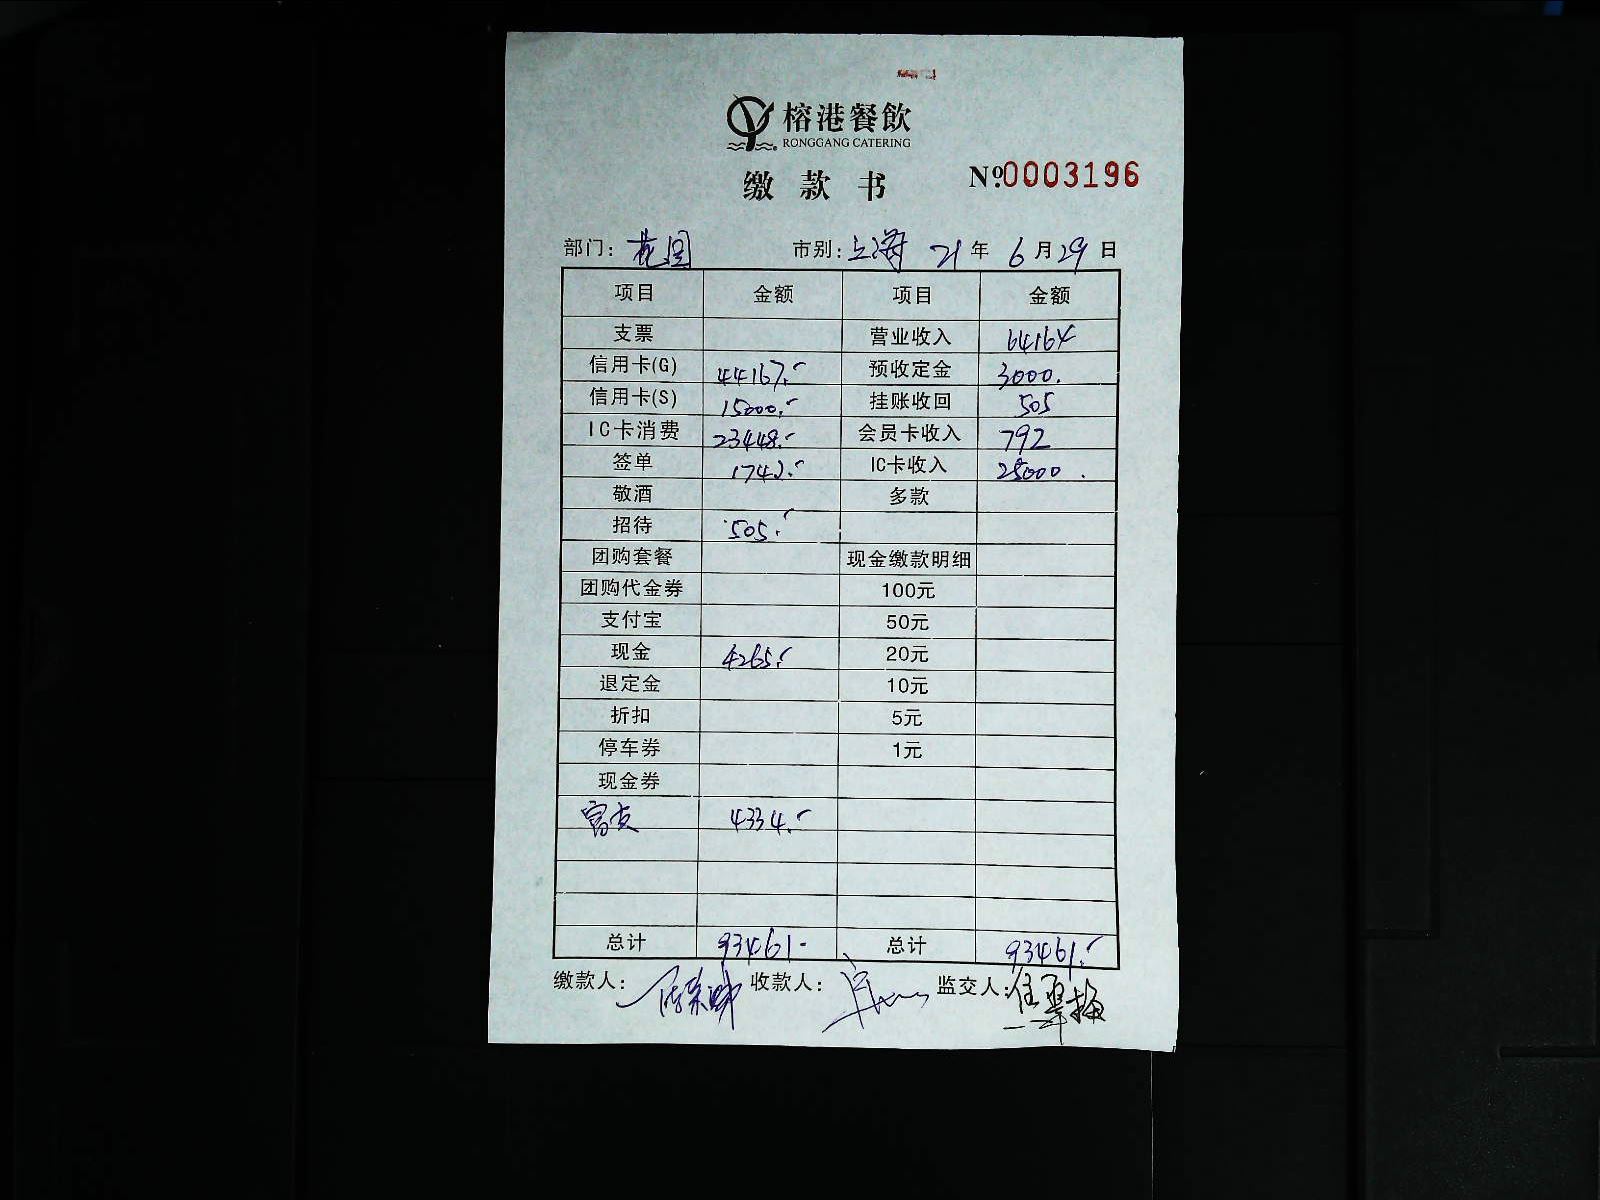 榕港餐飲
RONGGANG CATERING
缴款书 Nº.0003196
部门: 花园 市别: 上海 21年 6月29日
项目 金额 项目 金额
支票 营业收入 64164
信用卡(G) 44167.- 预收定金 3000.
信用卡(S) 15000.- 挂账收回 505
IC卡消费 23448.- 会员卡收入 792
签单 1742.- IC卡收入 25000.
敬酒 多款
招待 505.-
团购套餐 现金缴款明细
团购代金券 100元
支付宝 50元
现金 4265.- 20元
退定金 10元
折扣 5元
停车券 1元
现金券
富友 4334.-
总计 93461- 总计 93461.-
缴款人: 收款人: 监交人: 任翠梅